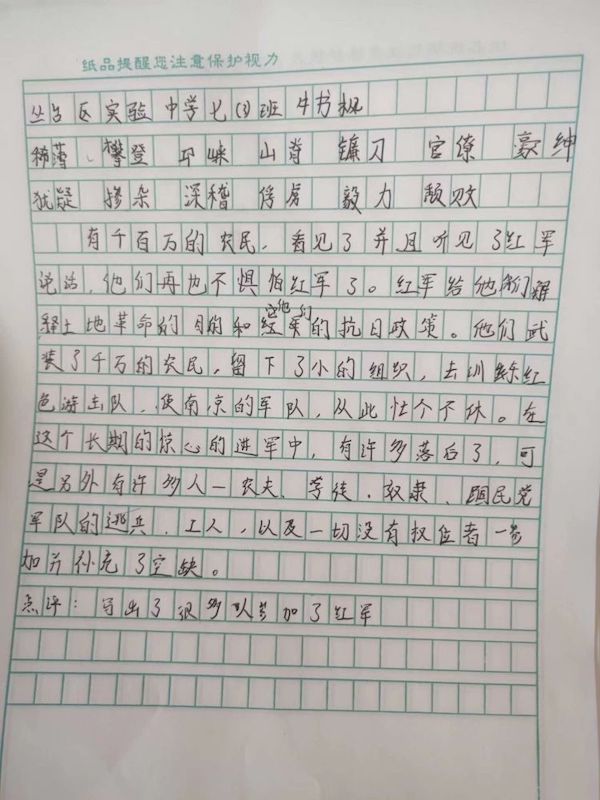 纸品提醒您注意保护视力
丛台区实验中学七(3)班 牛书枫
稀薄、攀登 平 山脊 镰刀 官僚 豪绅
犹疑 掺杂 深稽 俘虏 毅力 颓败
有千百万的农民，看见了并且听见了红军
说话，他们再也不惧怕红军了。红军给他们解
释土地革命的目的和它他们的抗日政策。他们武
装了千万的农民，留下了小的组织，去训练红
色游击队，使南京的军队，从此忙个不休。在
这个长期的惊心的进军中，有许多落后了，可
是另外有许多人一农夫、学徒、奴隶、国民党
军队的逃兵、工人，以及一切没有权位者一参
加并补充了空缺。
点评：写出了很多队参加了红军